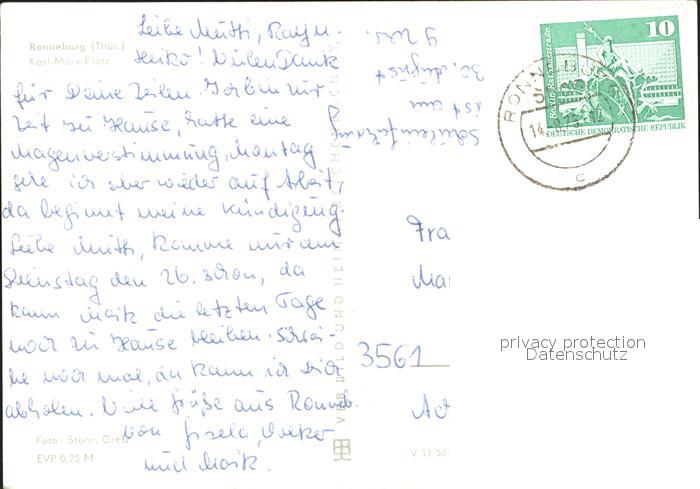 Ronneburg (Thür.)
Karl-Marx-Platz
Leibe Mutti, Ray u.
Heiko! Vielen Dank
für Deine Zeilen. Ich bin zur
Zeit zu Hause, hatte eine
Magenverstimmung, Montag
gehe ich aber wieder auf Arbeit,
da beginnt meine Kündigung.
Leibe Mutti, komme nur am
Dienstag den 26. schon, da
kann Maik die letzten Tage
noch zu Hause bleiben. Schrei-
be noch mal, da kann ich Dich
abholen. Viele Grüße aus Ronneb.
von Gisela, Volker
und Maik.
Schuleinführung
ist am
30. August
9 Uhr.
Foto: Stohr, Greiz
EVP 0,25 M
VEB BILD UND HEIM REICHENBACH I. V.
V 11 50
10
DEUTSCHE DEMOKRATISCHE REPUBLIK
RONNEBURG
c
Fra
Ma
3561
privacy protection
Datenschutz